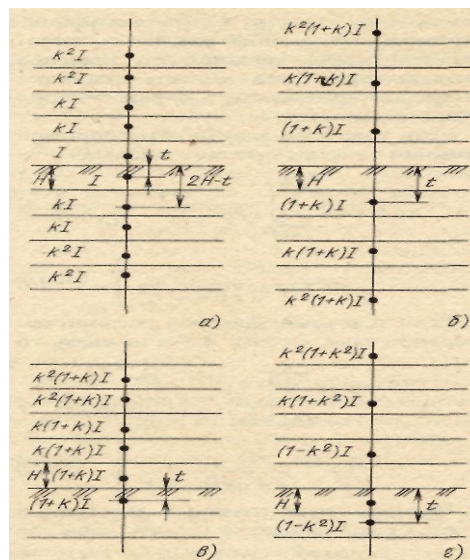 k²I
k²I
kI
kI
I
t
H I 2H-t
kI
kI
k²I
k²I
а)
k²(1+k)I
k(1+k)I
(1+k)I
H t
(1+k)I
k(1+k)I
k²(1+k)I
б)
k²(1+k)I
k²(1+k)I
k(1+k)I
k(1+k)I
H (1+k)I t
(1+k)I
в)
k²(1+k²)I
k(1+k²)I
(1-k²)I
H t
(1-k²)I
г)